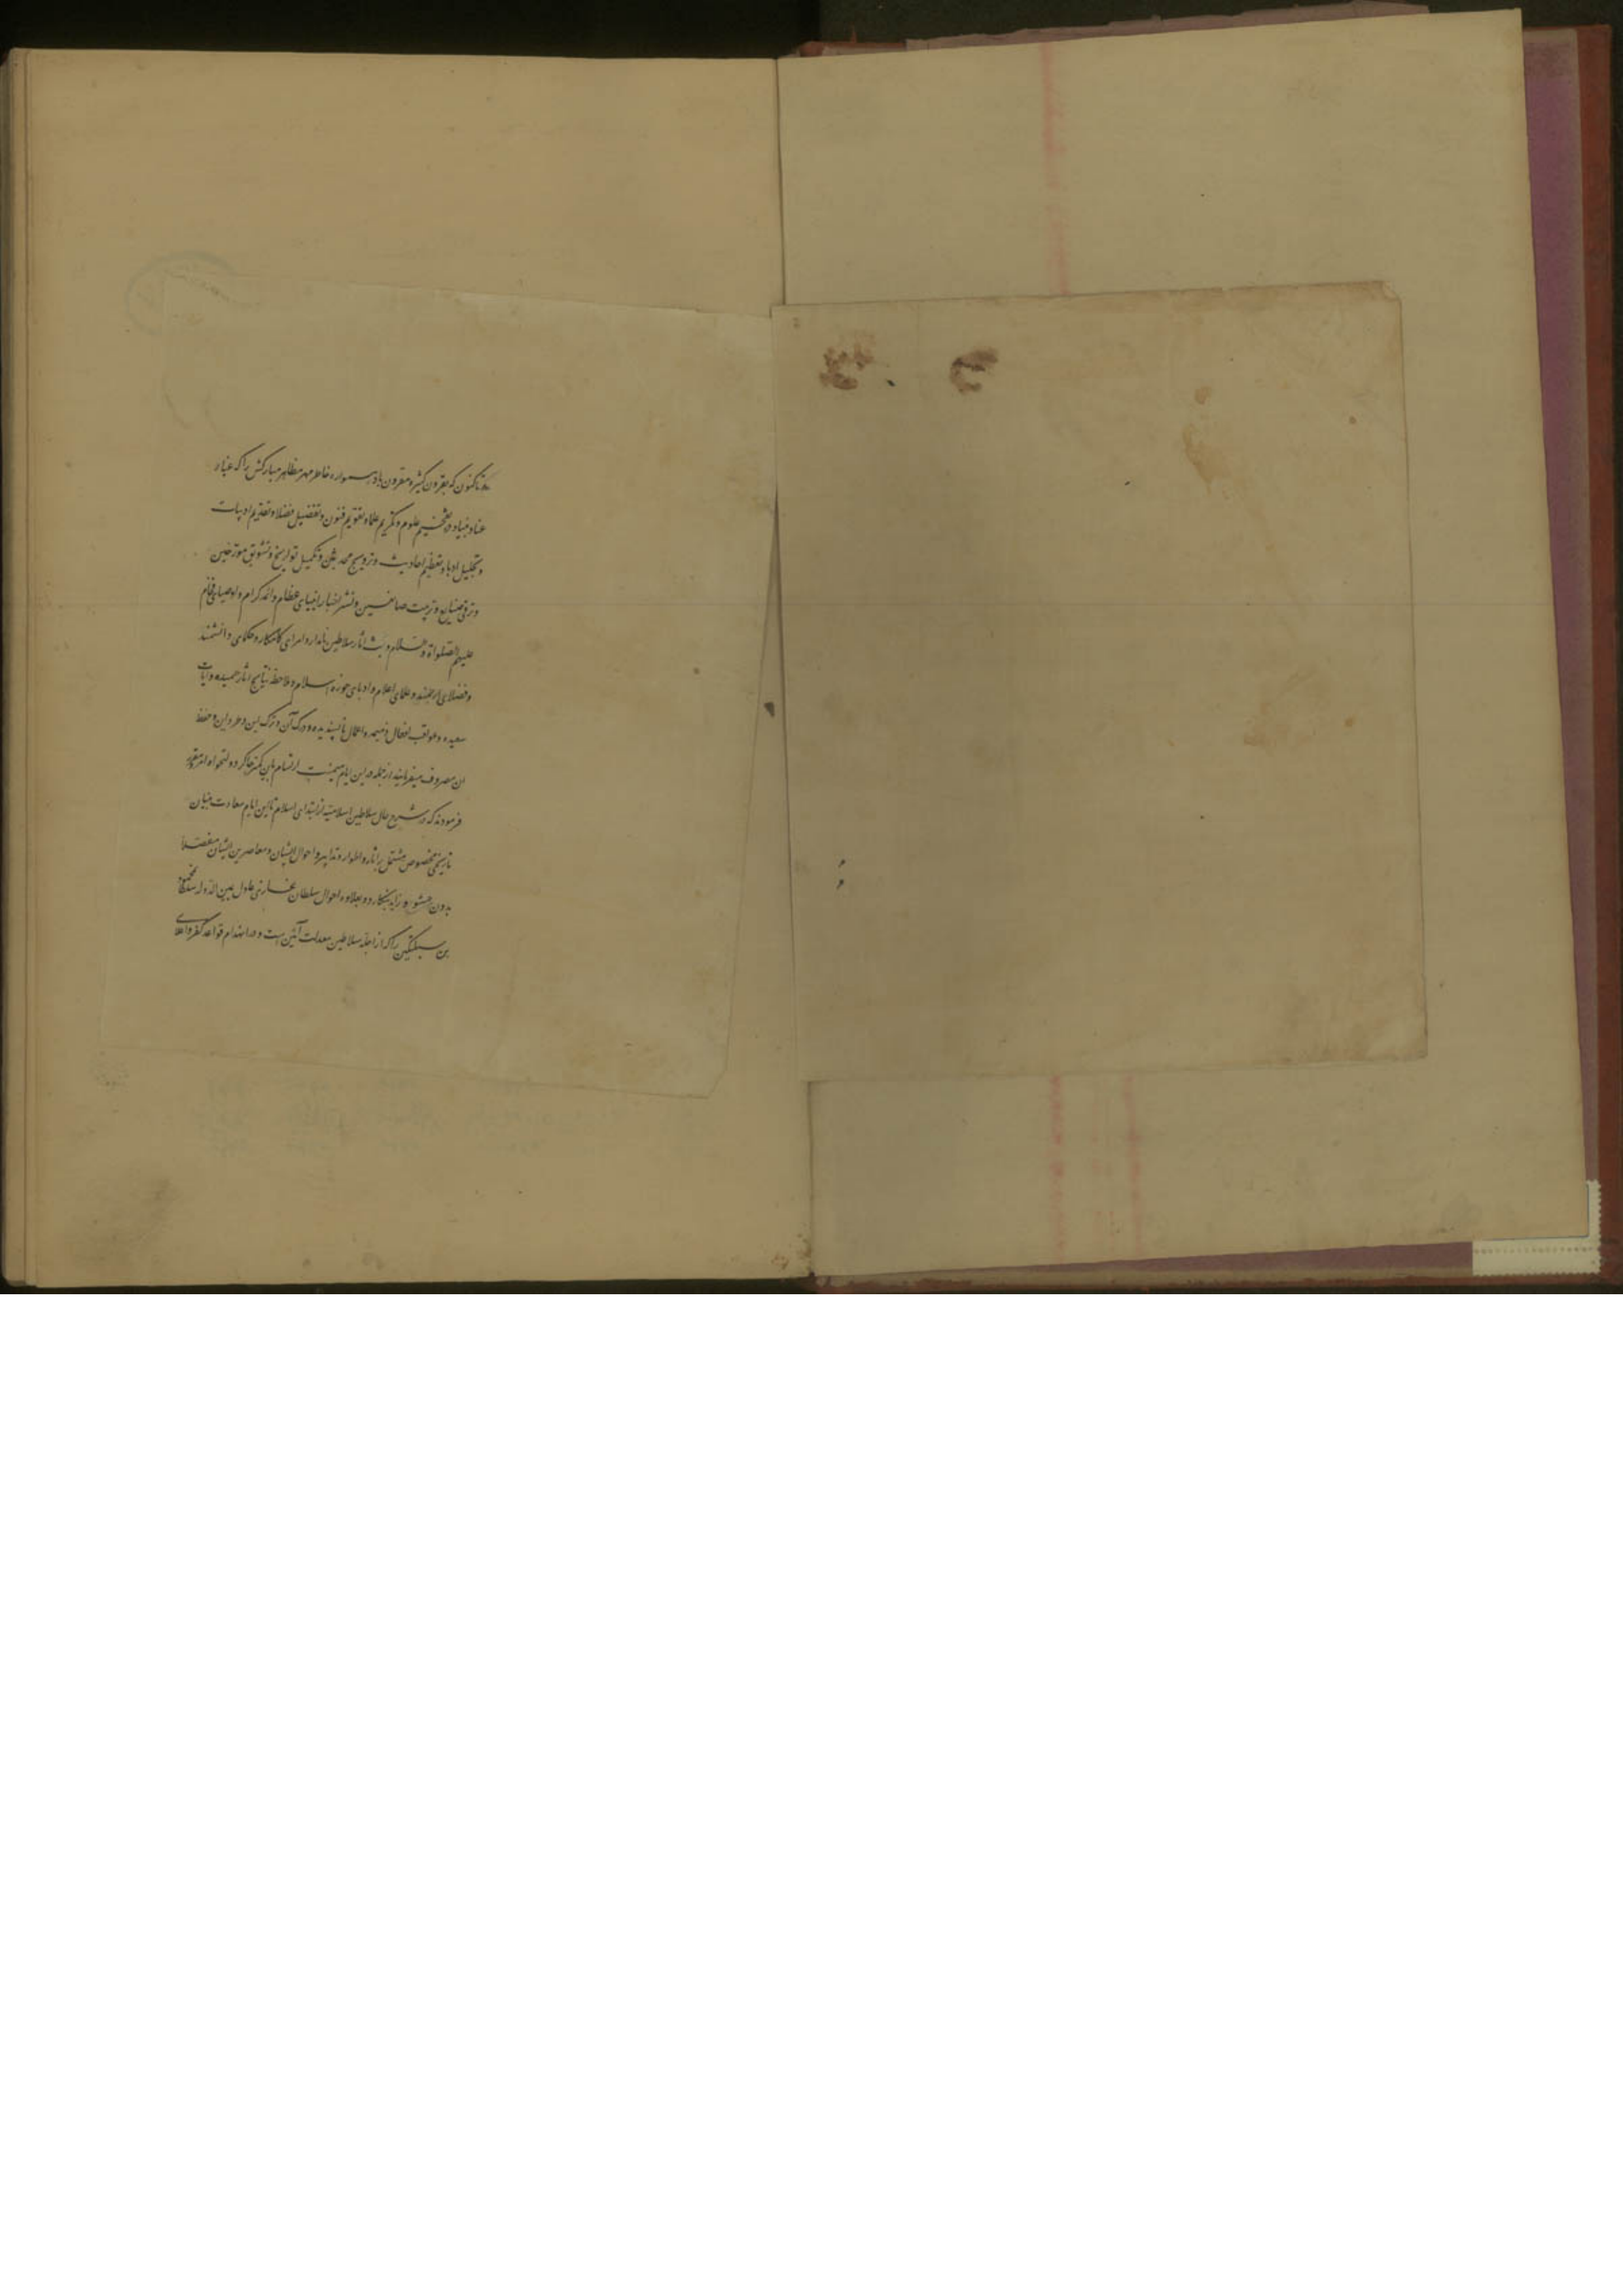 تاکنون که بقرون کثیره مقرون باد همواره خاطر مهر مظاهر مبارکش را که غبار
عناد مبیناد در تفخیم علوم و تکریم علما و تقویم فنون و تفضیل فضلا و تقدیم ادبیات
و تجلیل ادبا و تعظیم احادیث و ترویج محدثین و تکمیل تواریخ و تشویق مورخین
و ترقی صنایع و تربیت صانعین و نشر اخبار انبیای عظام و ائمه کرام و اوصیای فخام
علیهم الصلواة والسلام و بث اثار سلاطین نامدار و امرای کامکار و حکمای دانشمند
و فضلای ارجمند و علمای اعلام و ادبای حوزه اسلام و ملاحظه نتایج اثار حمیده و ایات
سعیده و عواقب افعال ذمیمه و اعمال ناپسندیده و درک آن و ترک این و طرد این و حفظ
ان مصروف میفرمایند از جمله در این ایام میمنت ارتسام باین کمتر چاکر دولتخواه امر و مقرر
فرمودند که در شرح حال سلاطین اسلامیه از ابتدای اسلام تا این ایام سعادت بنیان
تاریخی مخصوص مشتمل بر اثار و اطوار و تدابیر و احوال ایشان و معاصرین ایشان مفصلا
بدون حشو و زاید بنگارد و بعلاوه احوال سلطان غازی عادل یمین الدوله سلطان محمود
بن سبکتکین را که از اجله سلاطین معدلت آئین است و در انهدام قواعد کفر و اعلای